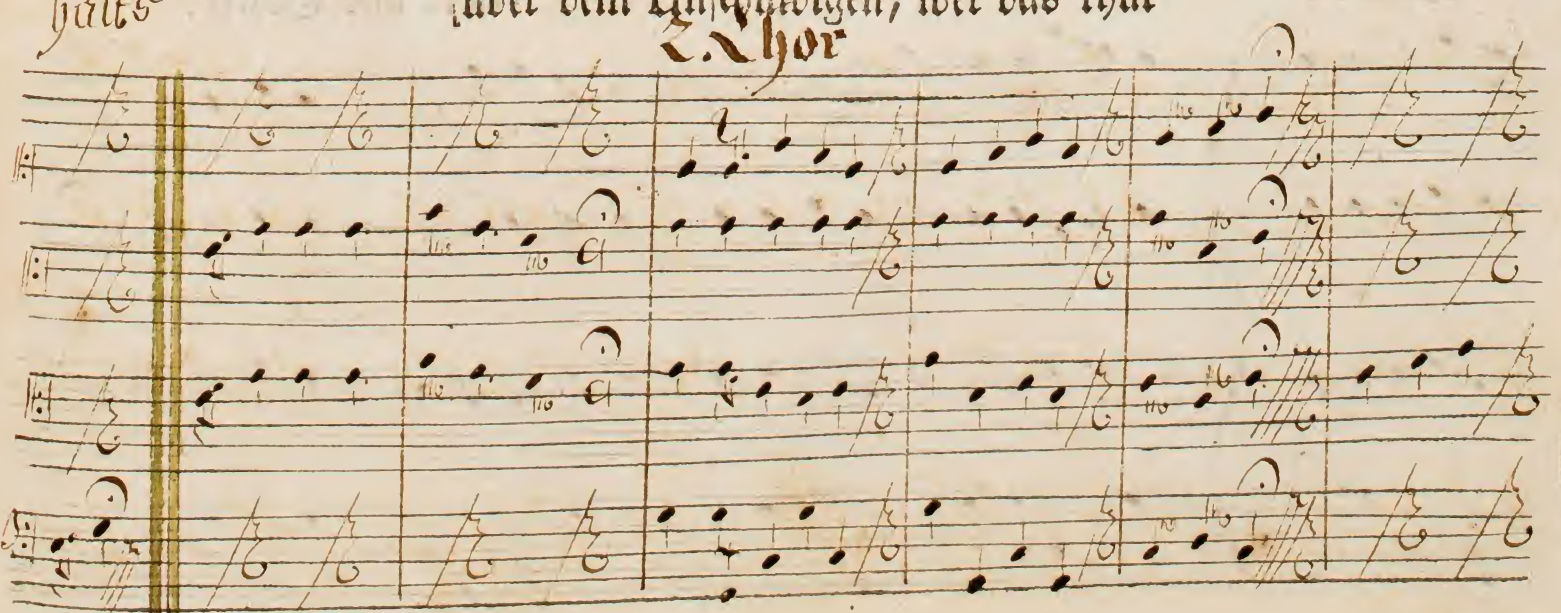 halts
über dem Unschuldigen, wer das thut
2. Chor